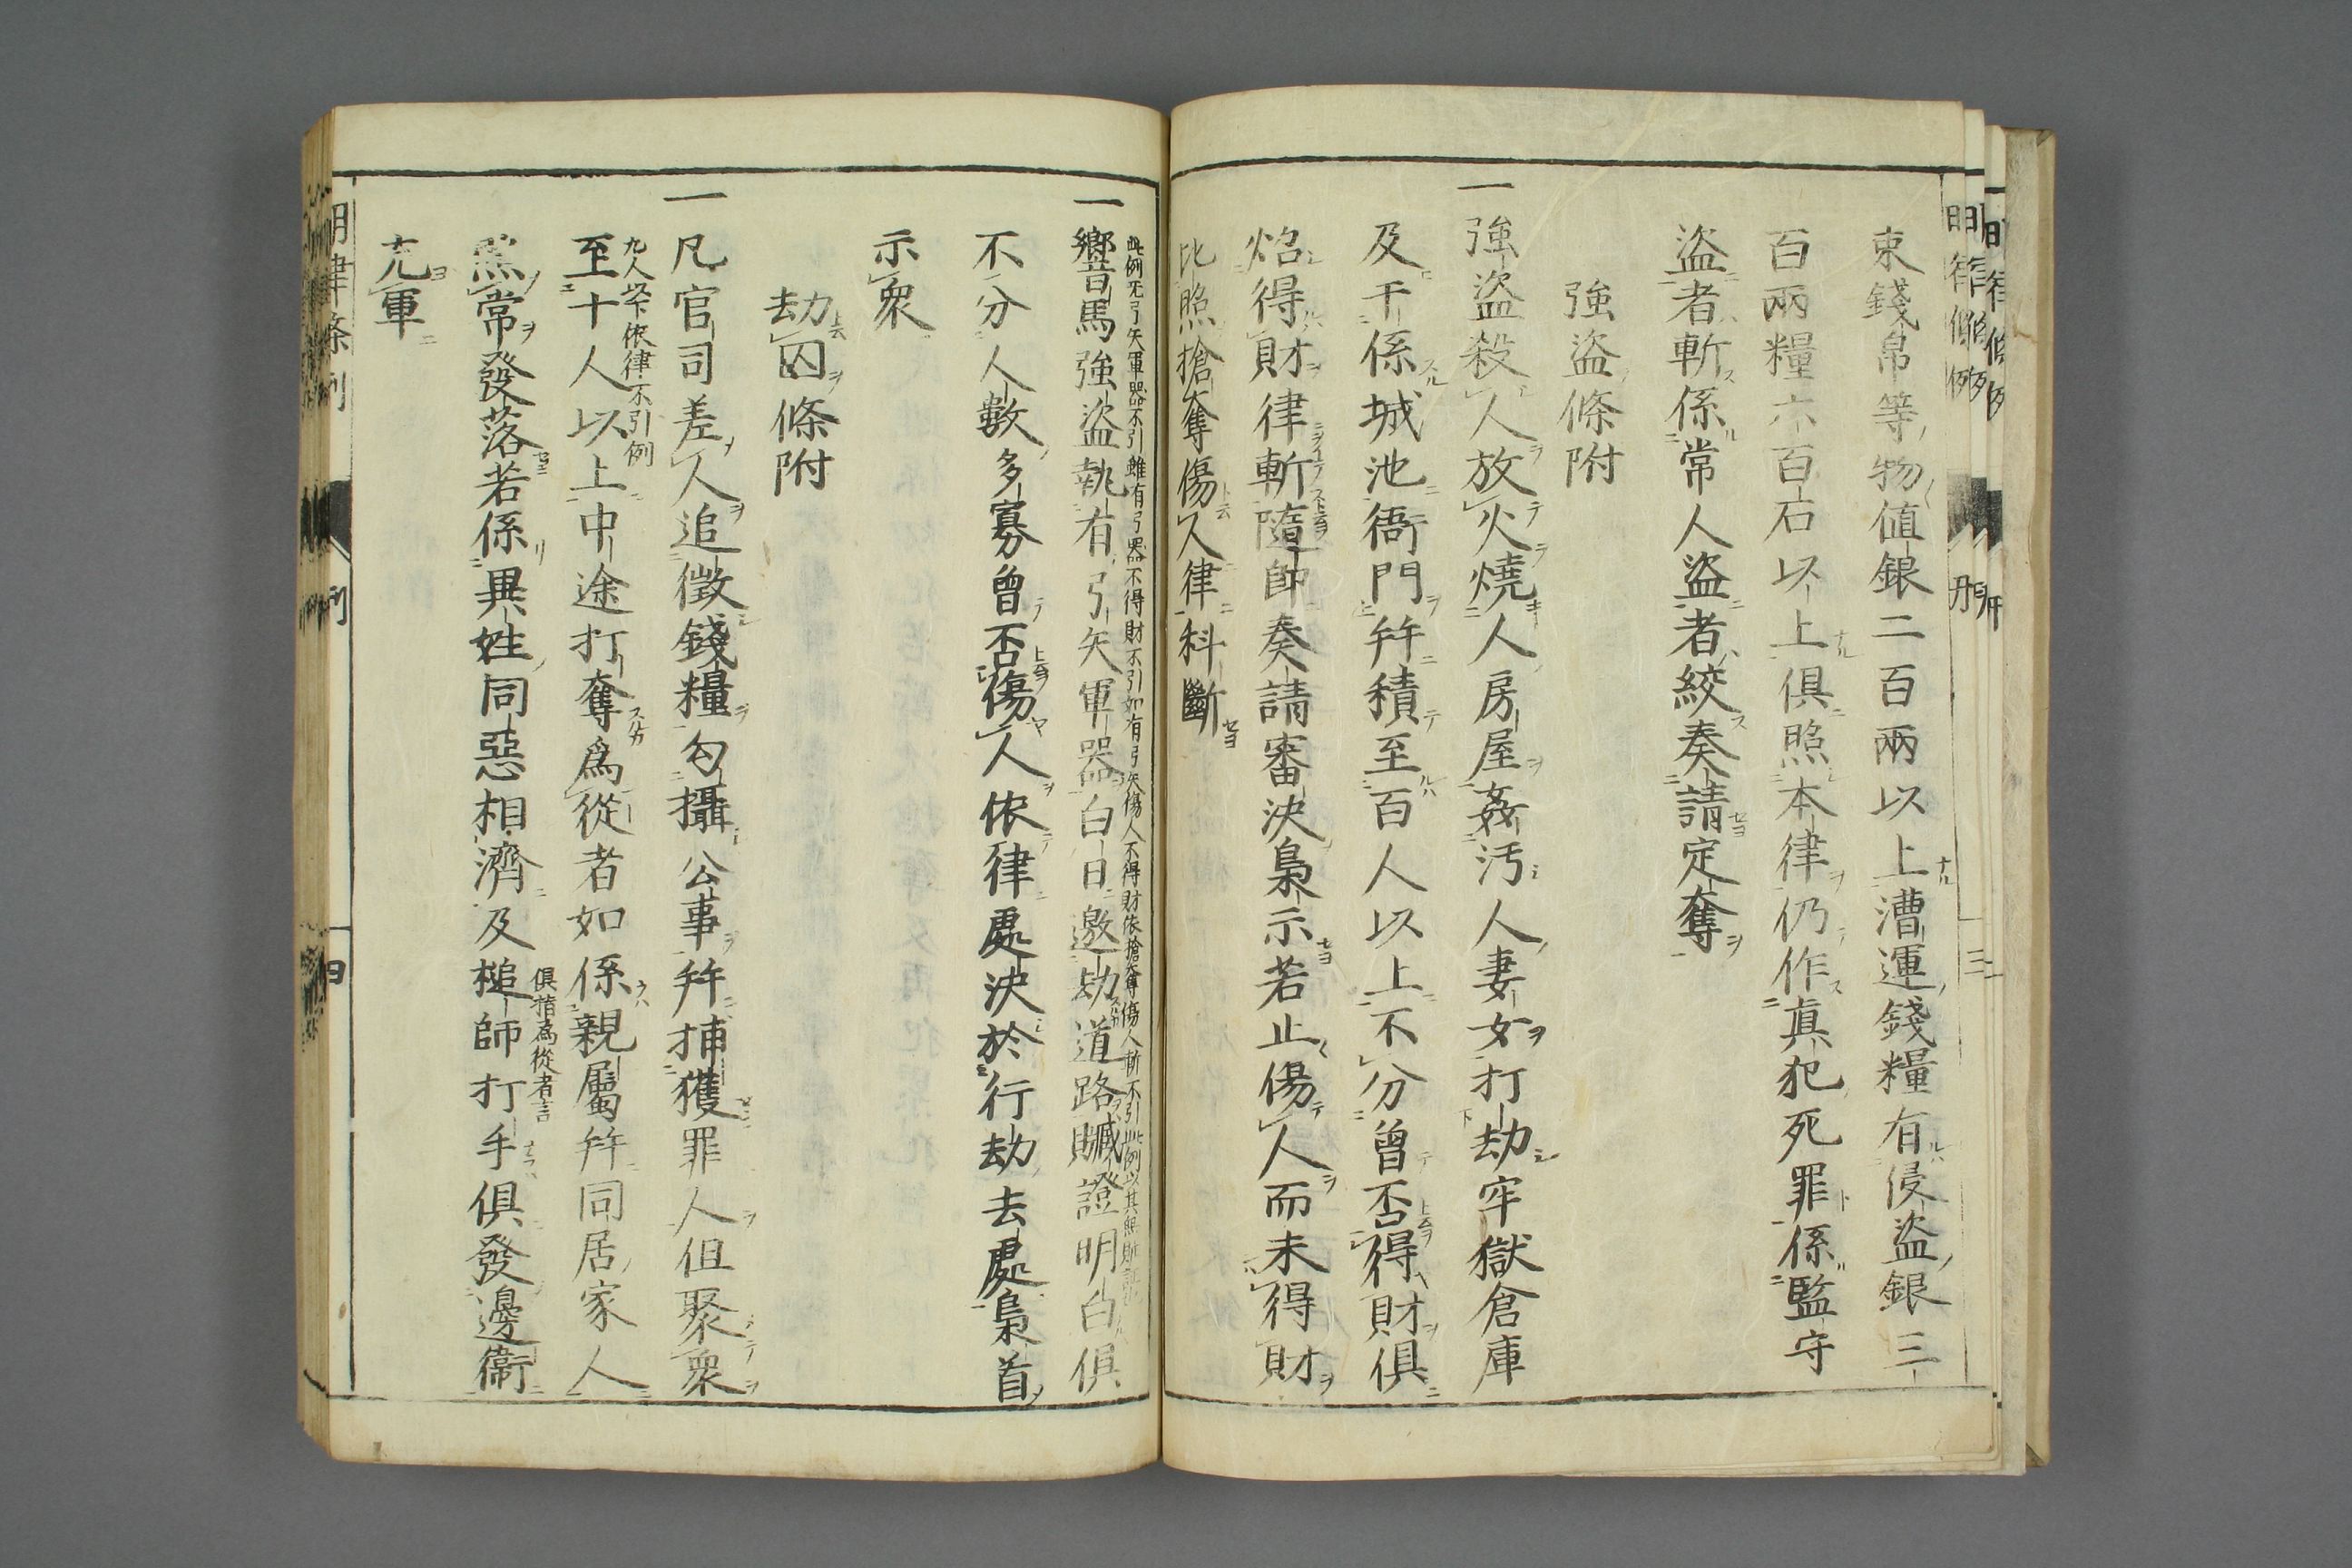 束錢帛等物値銀二百兩以上漕運錢糧有侵盗銀三
百兩糧六百石以上俱照本律仍作真犯死罪係監守
盗者斬係常人盗者絞奏請定奪
強盗條附
一強盗殺人放火燒人房屋姦汚人妻女打劫牢獄倉庫
及干係城池衙門幷積至百人以上不分曾否得財俱
炤得財律斬隨卽奏請審決梟示若止傷人而未得財
比照搶奪傷人律科斷
此例無弓矢軍器不引雖有弓器不得財不引如有弓矢傷人不得財依搶奪傷人斬不引此例以其無贓證
一響馬強盗執有弓矢軍器白日邀劫道路贓證明白俱
不分人數多寡曾否傷人依律處決於行劫去處梟首
示衆
劫囚條附
一凡官司差人追徵錢糧勾攝公事幷捕獲罪人但聚衆
九人以下依律不引例
至十人以上中途打奪爲從者如係親屬幷同居家人
照常發落若係異姓同惡相濟及槌師打手俱發邊衞
俱指為從者言
充軍
明律條例
刑
四